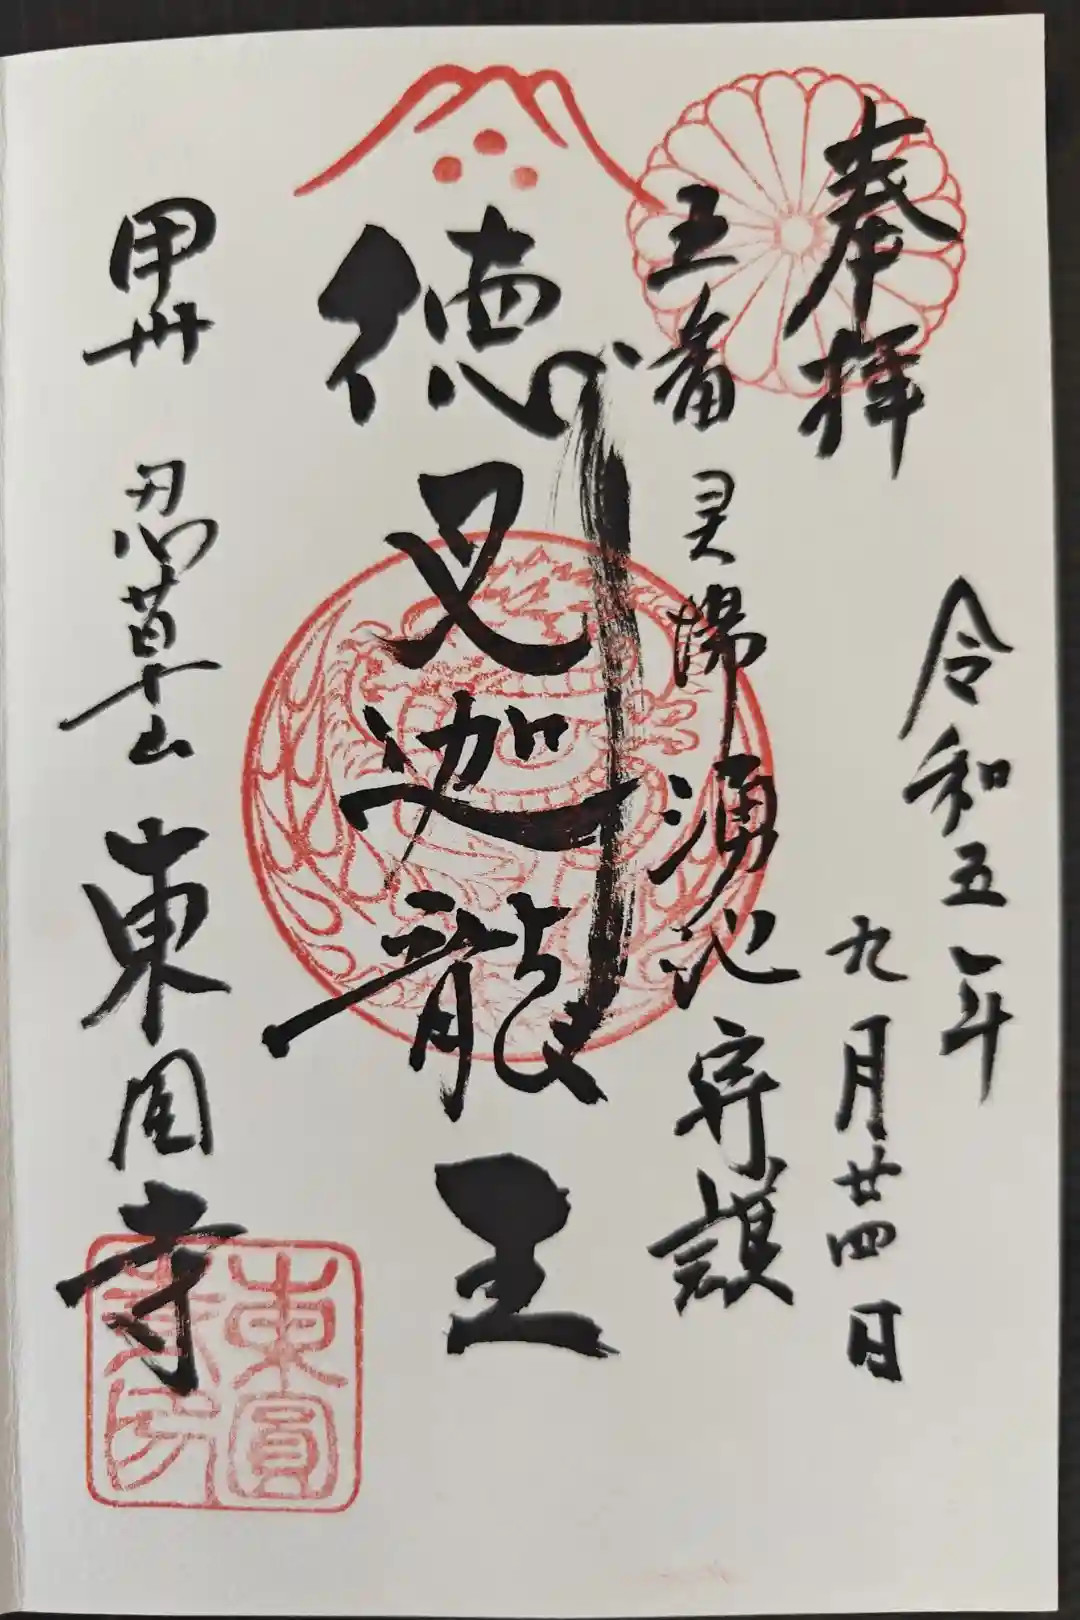 奉拝
令和五年
九月廿四日
五番 灵場 湧池
徳叉迦龍王
甲州 忍草山 東円寺
東圓寺印